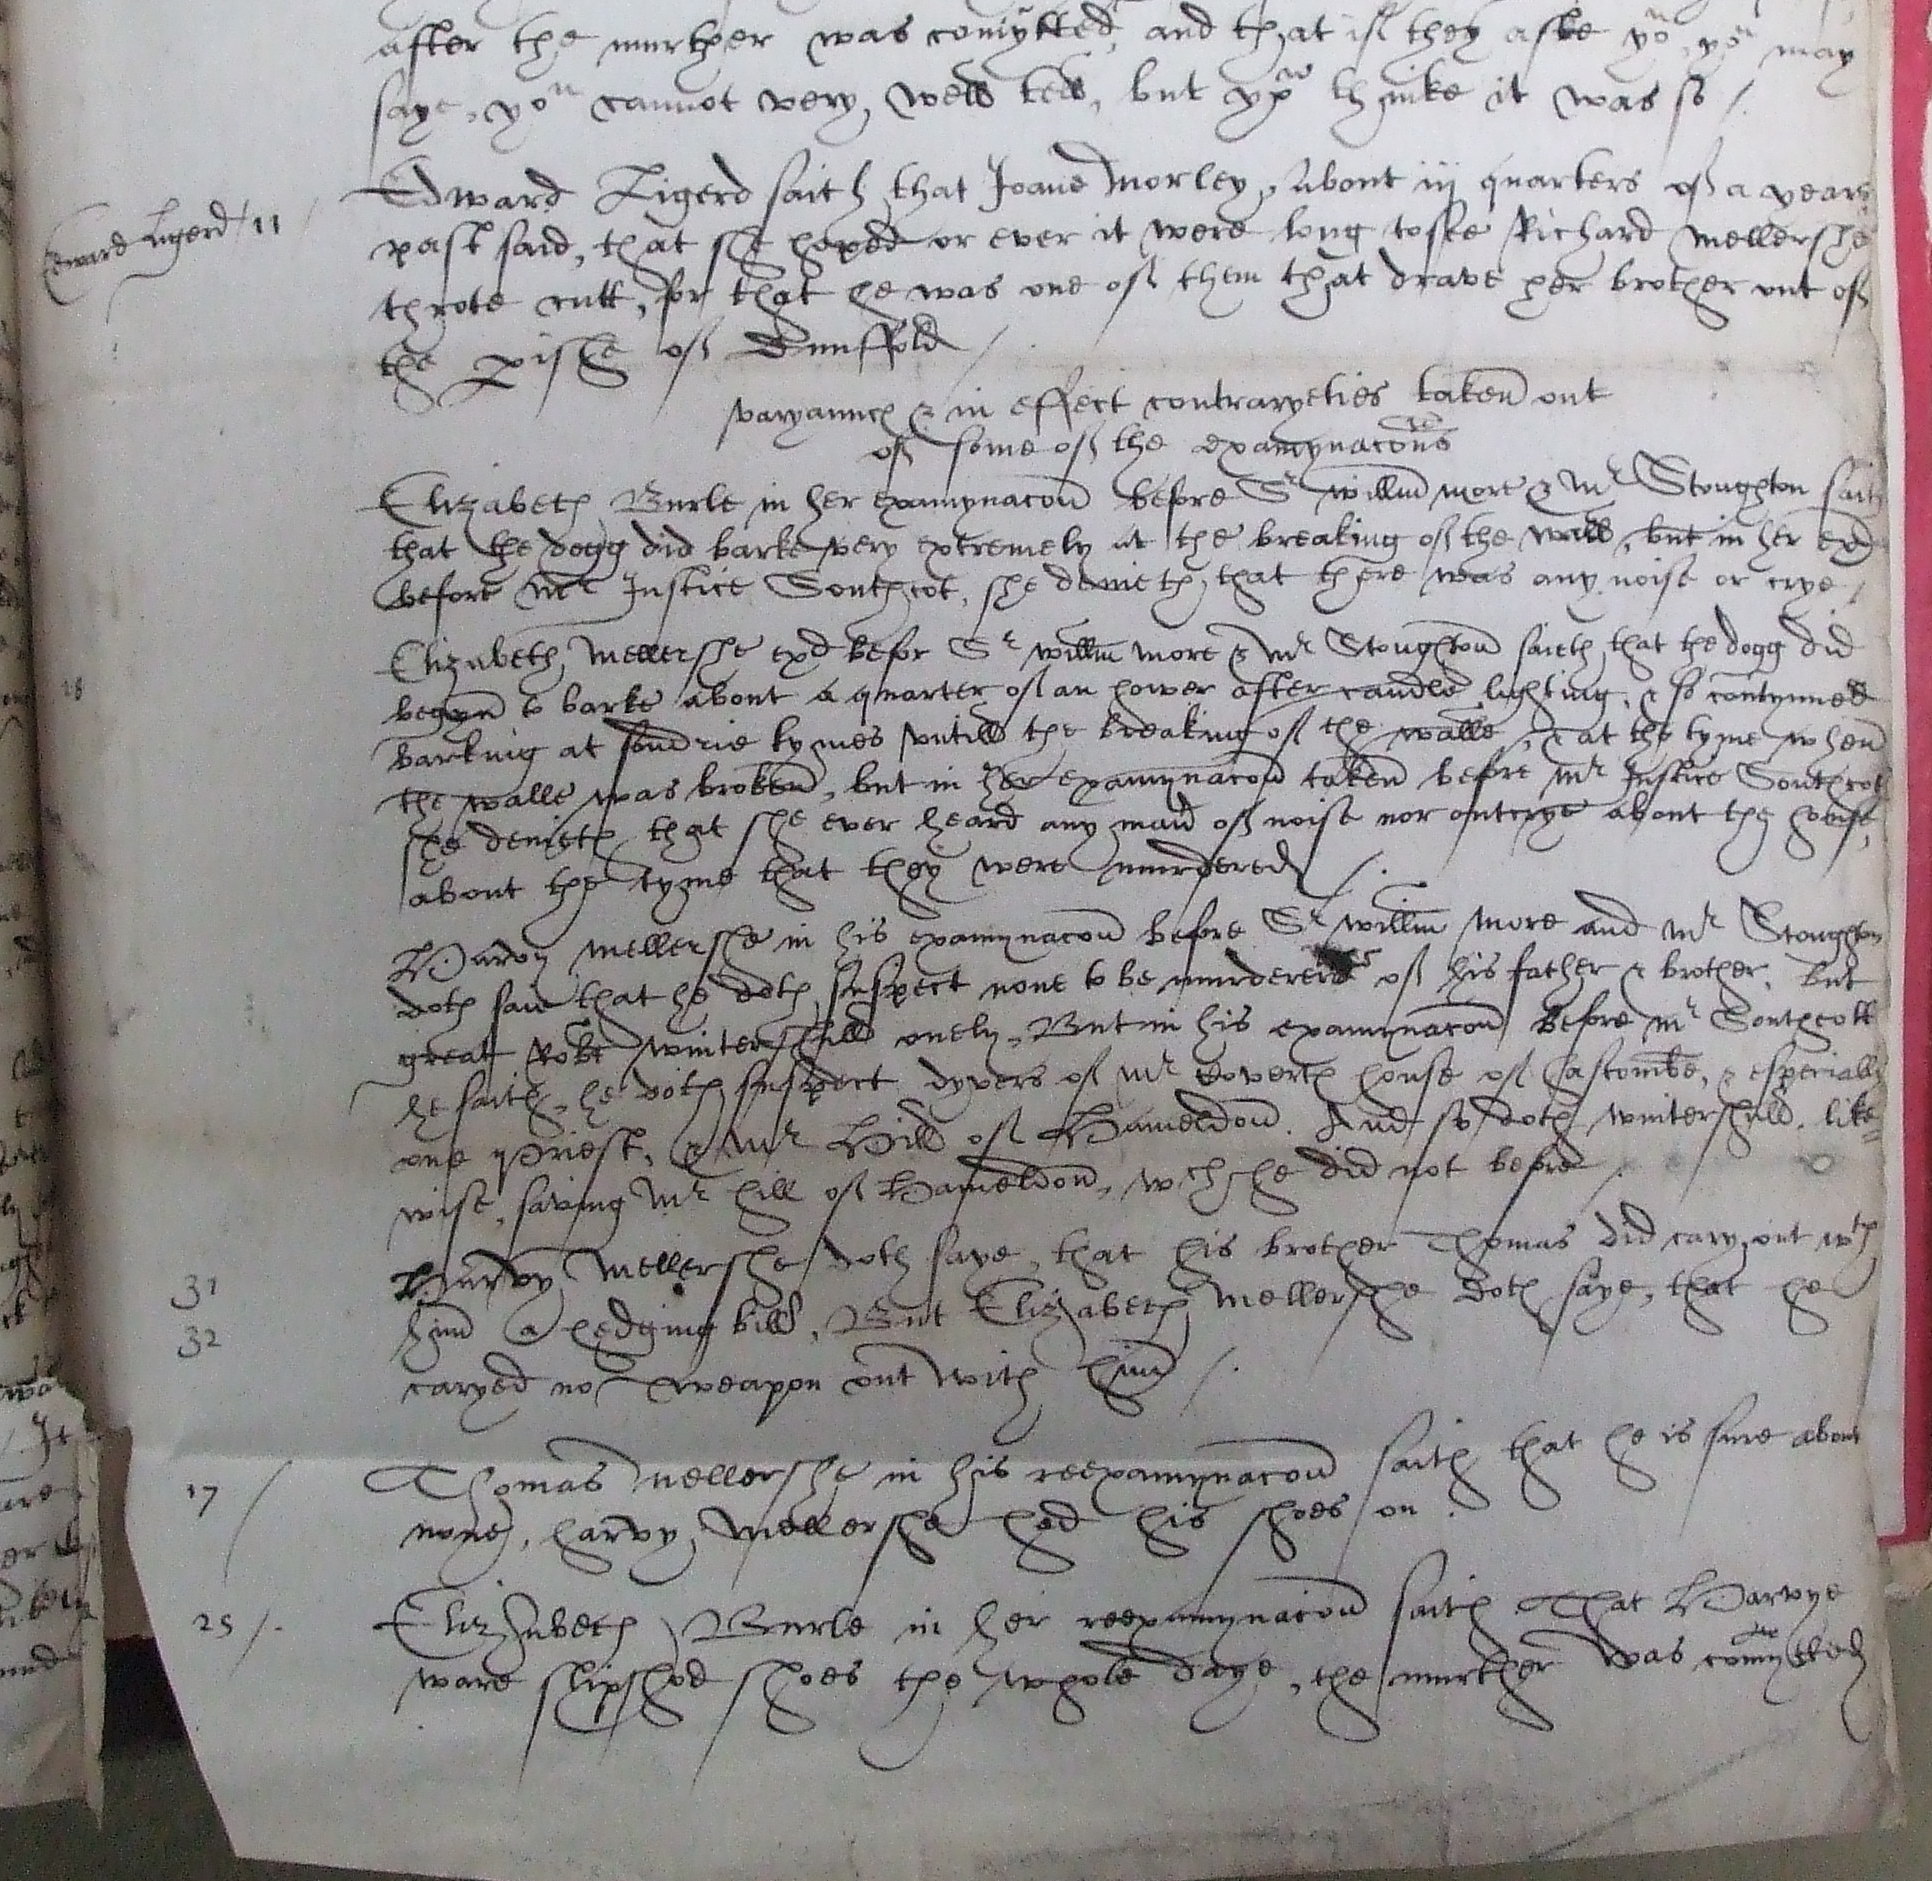 after the murther was comytted, and that if they aske yow, yow may
saye, yow cannot very well tell, but yow thinke it was so /.
Edward Ligerd / 11
Edward Ligerd saith that Joane Morley, about iij quarters of a yeare
past said, that she hoped or ever it were long to see Richard Mellershe
throte cutt, for that he was one of them that drave her brother out of
the pishe of Dunffold /
varyaunces & in effect contraryeties taken out
of some of the examynacons
Elizabeth Burle in her examynacon before Sr Willm More & Mr Stoughton saith
that the dogg did barke very extremely at the breaking of the wall, but in her exd
before Mr Justice Southcot, she denieth that there was any noise or crye /
28
Elizabeth Mellershe exd befor Sr Willm More & Mr Stoughton saieth that the dogg did
begyn to barke about a quarter of an hower after candle lighting, & so contynued
barking at sondrie tymes vntill the breaking of the walle, & at the tyme when
the walle was broken, but in her examynacon taken before Mr Justice Southcot
she denieth that she ever heard any mann of noise nor outcrye about the house,
about the tyme that they were murdered /.
Harvy Mellershe in his examynacon before Sr Willm More and Mr Stoughton
doth saie that he doth suspect none to be murderers of his father & brother, but
great Robt Wintershull onely, But in his examynacon before Mr Southcott
he saith, he doth suspect dyvers of Mr house of Hascombe, & especially
one Priest, & Mr Hill of Hameldon. And so doth Wintershull, like=
wise, saving Mr Hill of Hameldon, wch he did not before /.
31
32
Harvy Mellershe doth saye, that his brother Thomas did cary out wth
him a hedging bill, But Elizabeth Mellershe doth saye, that he
caryed no weapon out with him /.
17 /
Thomas Mellershe in his reexamynacon saith that he is sure about
none, harvy Mellershe had his shoes on.
25 /.
Elizabeth Burle in her reexamynacon saith That Harvye
ware slipshod shoes the whole daye, the murther was comytted